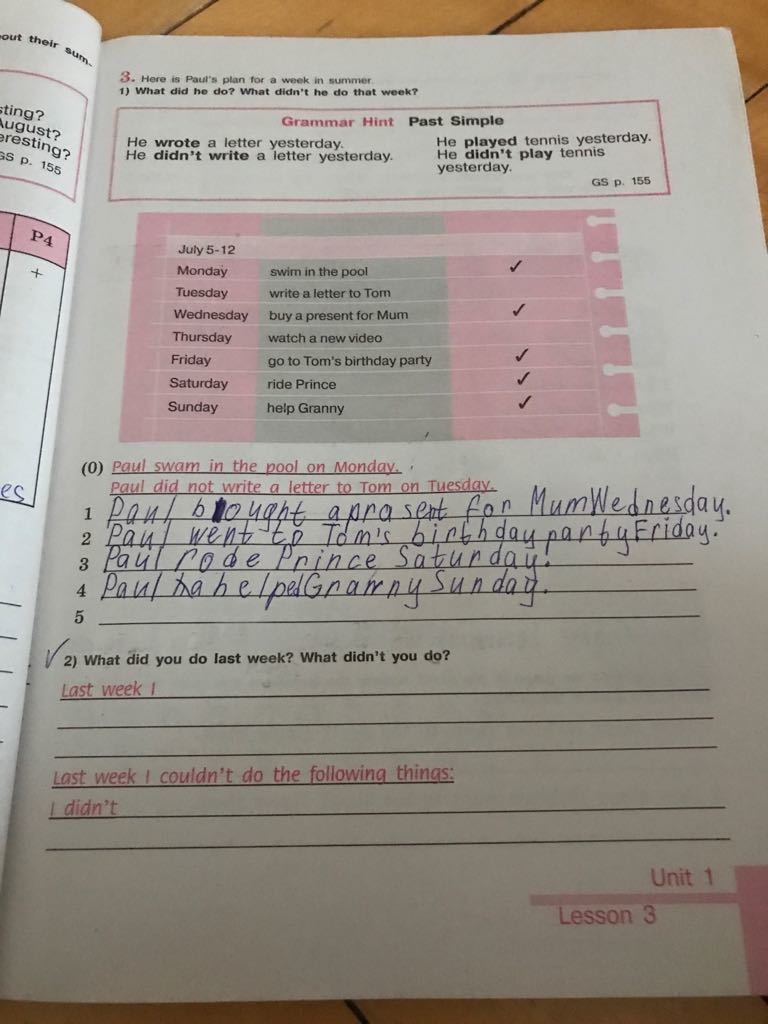 out their sum-
sting?
August?
eresting?
GS p. 155
P4
+
es
3. Here is Paul's plan for a week in summer.
1) What did he do? What didn't he do that week?
Grammar Hint Past Simple
He wrote a letter yesterday.
He didn't write a letter yesterday.
He played tennis yesterday.
He didn't play tennis
yesterday.
GS p. 155
July 5-12
Monday swim in the pool ✓
Tuesday write a letter to Tom
Wednesday buy a present for Mum ✓
Thursday watch a new video
Friday go to Tom's birthday party ✓
Saturday ride Prince ✓
Sunday help Granny ✓
(0) Paul swam in the pool on Monday.
Paul did not write a letter to Tom on Tuesday.
1 Paul bought a prasent for Mum Wednesday.
2 Paul went to Tom's birthday party Friday.
3 Paul rode Prince Saturday.
4 Paul helped Granny Sunday.
5
✓ 2) What did you do last week? What didn't you do?
Last week I
Last week I couldn't do the following things:
I didn't
Unit 1
Lesson 3